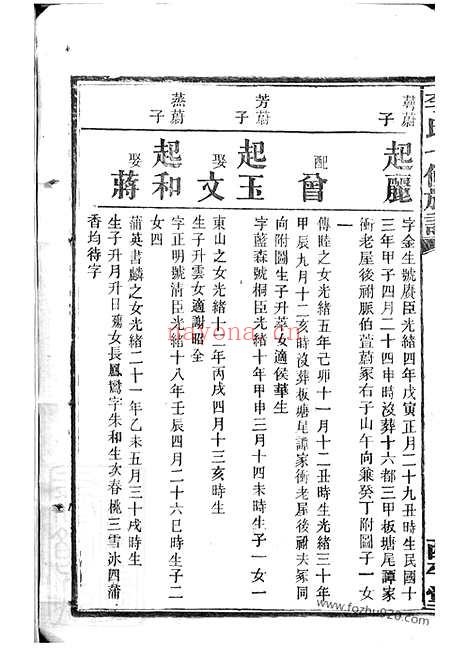 李氏
蕚蔚
子
起麗
字金生號賡臣光緒四年戊寅正月二十九丑時生民國十
三年甲子四月二十四申時沒葬十六都三甲板塘尾譚家
衝老屋後祔脈伯萱蔚冢右子山午向兼癸丁附圖子一女
一
配
曾
傳睦之女光緒五年己卯十一月十二丑時生光緒三十年
甲辰九月十二亥時沒葬板塘尾譚家衝老屋後祔夫冢同
向附圖生子升荃女適侯華生
芳蔚
子
起玉
字藍森號桐臣光緒十年甲申三月十四未時生子一女一
娶
文
東山之女光緒十二年丙戌四月十三亥時生
生子升雲女適謝昭全
蒸蔚
子
起和
字正明號清臣光緒十八年壬辰四月二十六巳時生子二
女四
娶
蔣
蒲英書麟之女光緒二十一年乙未五月三十戌時生
生子升月升日殤女長鳳鸞字朱和生次春桃三雪冰四蒲
香均待字
nayona.cn
www.fozhu920.com